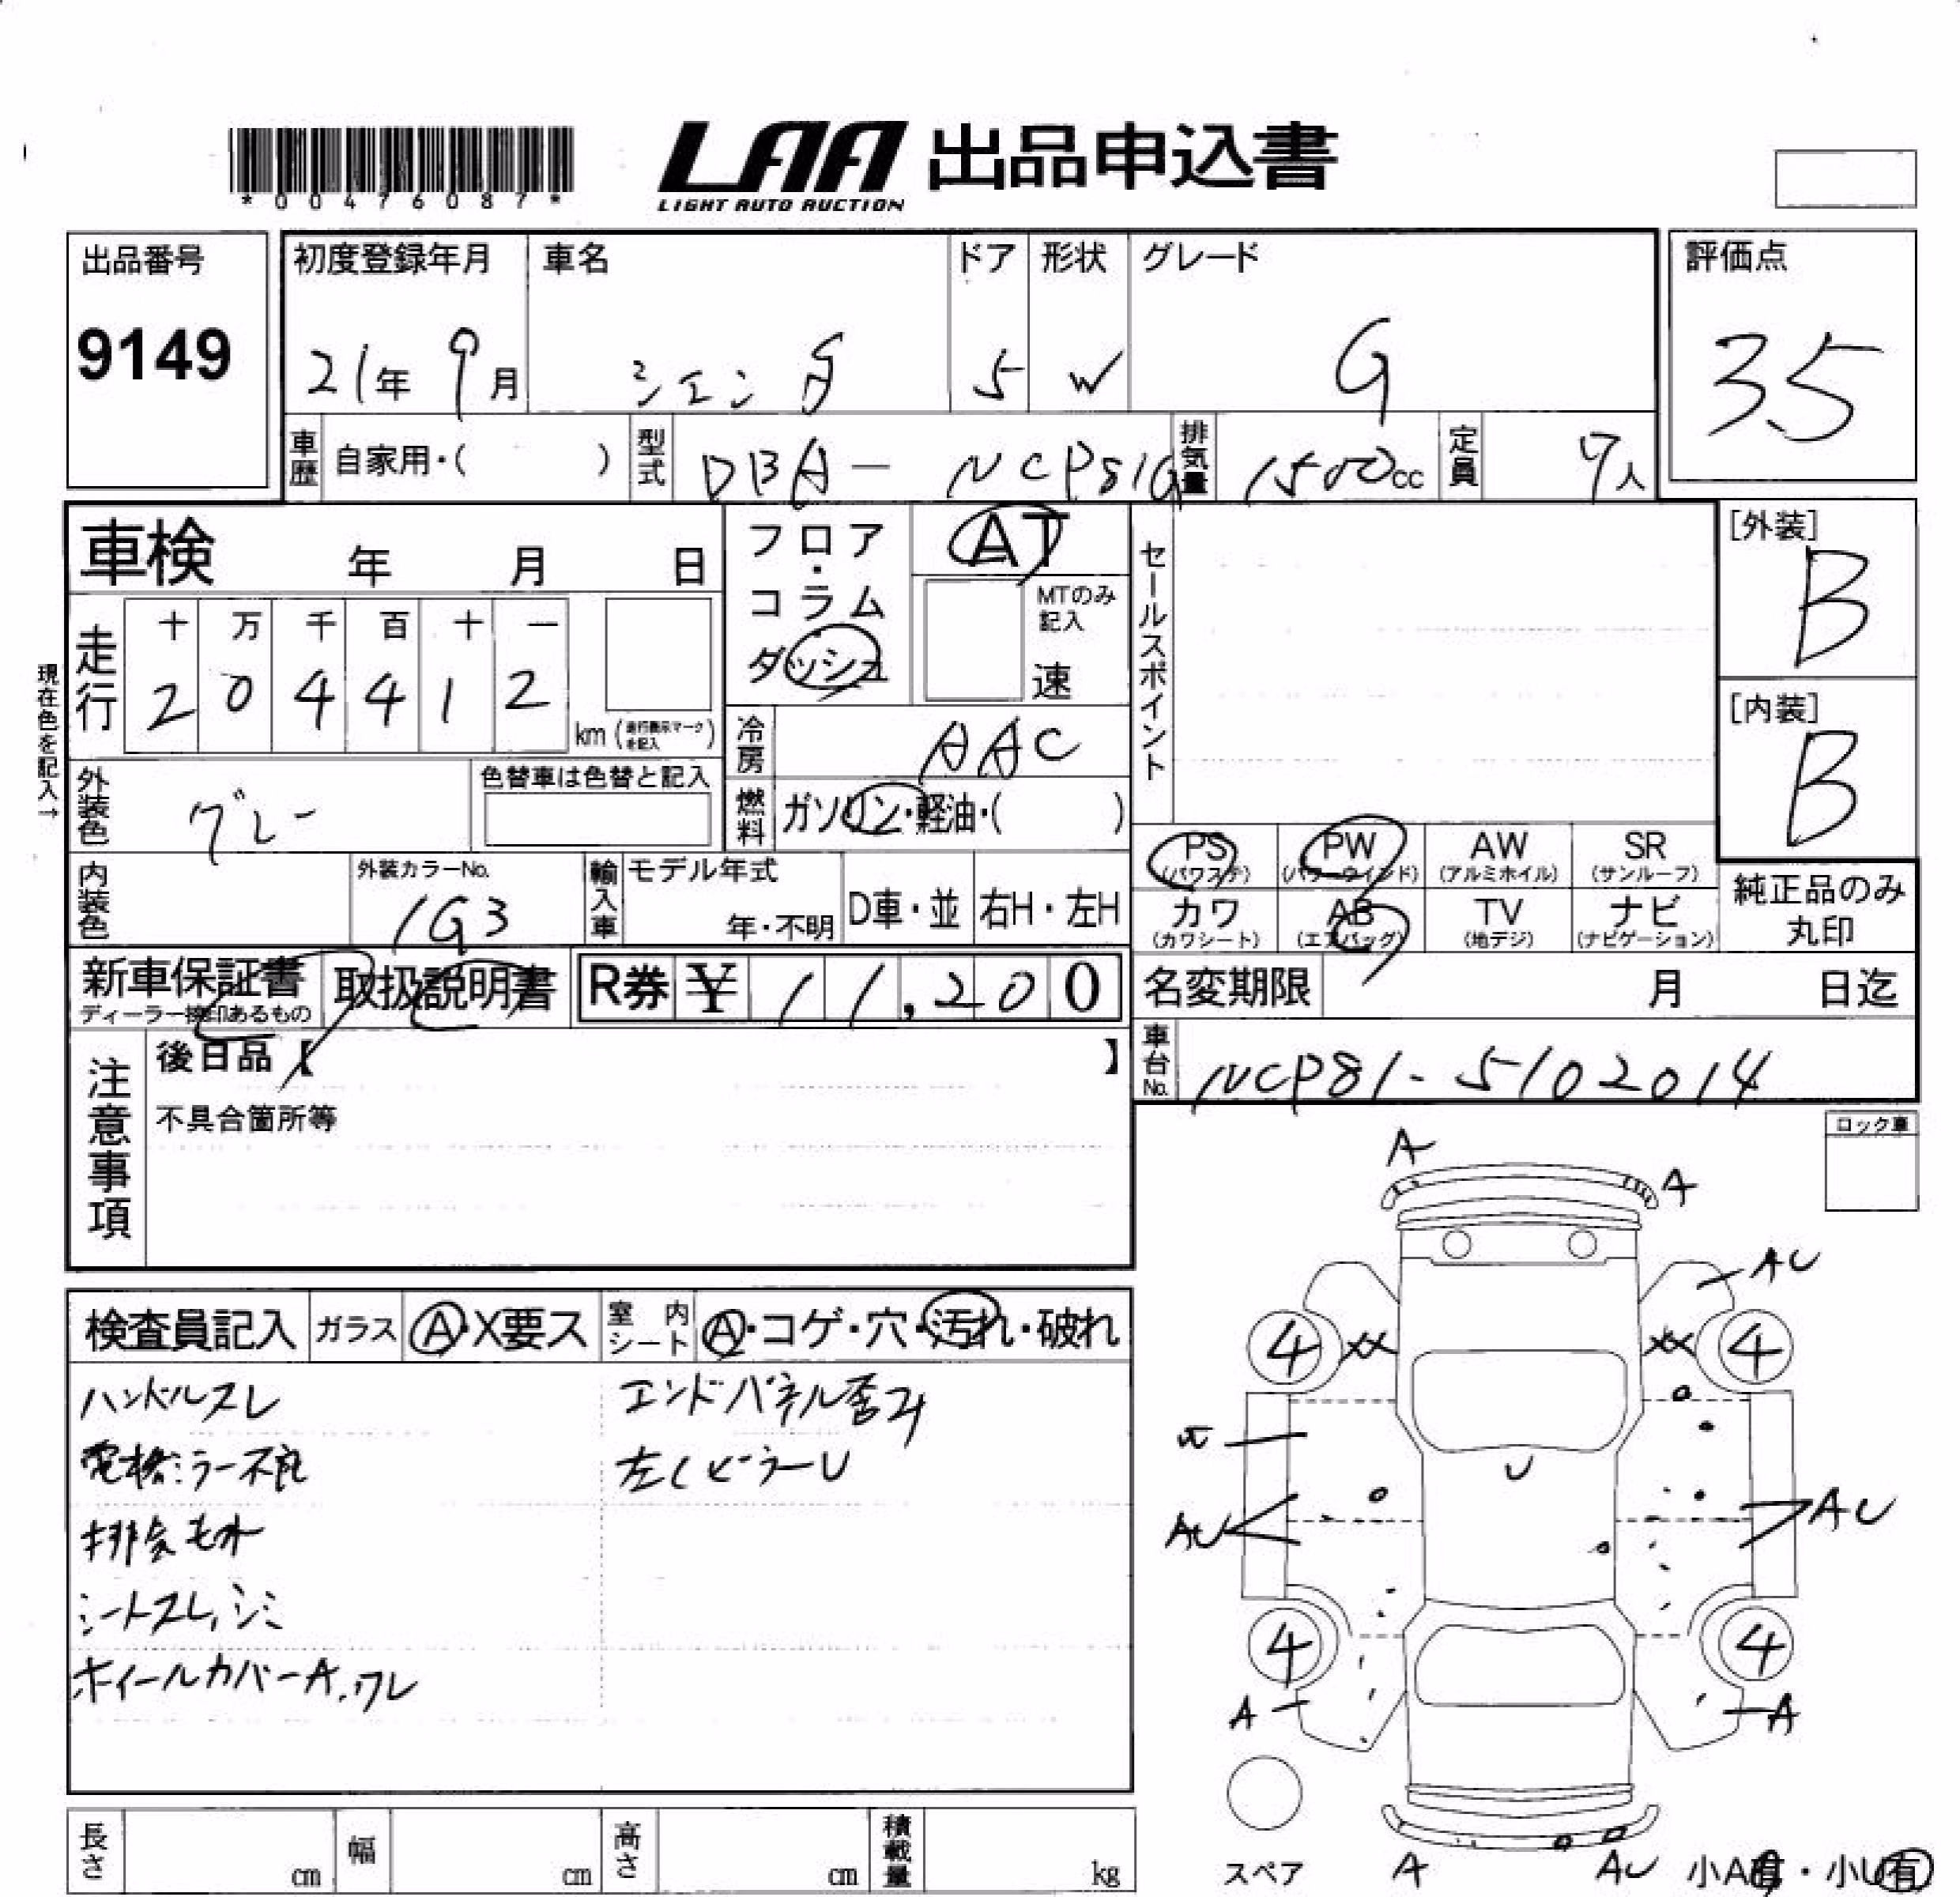 *00476087*
LAA 出品申込書
LIGHT AUTO AUCTION
出品番号 9149
初度登録年月 21年 9月
車名 シエンタ
ドア 5
形状 W
グレード G
評価点 3.5
車歴 自家用・( )
型式 DBA-NCP81G
排気量 1500cc
定員 7人
車検 年 月 日
フロア・コラム ダッシュ
AT
MTのみ記入 速
セールスポイント
[外装] B
[内装] B
現在色を記入→
走行 十 万 千 百 十 一
2 0 4 4 1 2 km (走行表示マークを記入)
冷房 AAC
外装色 グレー
色替車は色替と記入
燃料 ガソリン・軽油・( )
内装色
外装カラーNo. 1G3
輸入車 モデル年式 年・不明 D車・並 右H・左H
PS (パワステ) PW (パワーウインド) AW (アルミホイル) SR (サンルーフ)
カワ (カワシート) AB (エアバッグ) TV (地デジ) ナビ (ナビゲーション)
純正品のみ丸印
新車保証書 ディーラー捺印あるもの
取扱説明書
R券 ¥ 11,200
名変期限 月 日迄
注意事項
後日品【 】
不具合箇所等
車台No. NCP81-5102014
ロック車
検査員記入 ガラス A・X要ス 室内シート A・コゲ・穴・汚れ・破れ
ハンドルスレ
電格ミラー不良
排気もれ
シートスレ,シミ
ホイールカバーA.ワレ
エンドパネル歪み
左CピラーU
A
A
AU
4 XX XX 4
U
AU AU
4 4
A A
スペア
A AU
小A有・小U有
長さ cm 幅 cm 高さ cm 積載量 kg